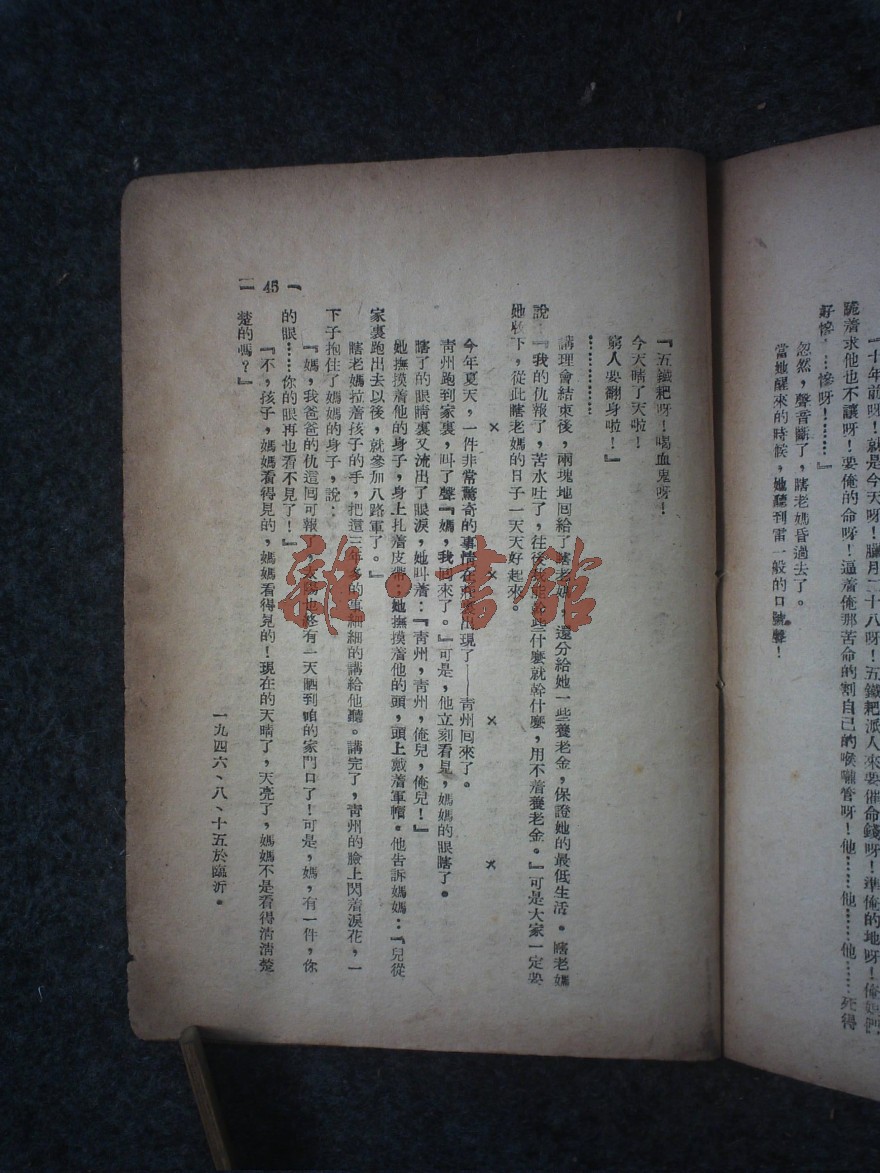 『十年前呀！就是今天呀！臘月二十八呀！五鐵耙派人來要催命錢呀！準俺的地呀！俺她爹
跪着求他也不讓呀！要俺的命呀！逼着俺那苦命的割自己的喉嚨管呀！他………他………死得
好慘…慘呀！………』
忽然，聲音斷了，瞎老媽昏過去了。
當她醒來的時候，她聽到雷一般的口號聲！
『五鐵耙呀！喝血鬼呀！
今天晴了天啦！
窮人要翻身啦！』
…………
講理會結束後，兩塊地回給了瞎老媽，還分給她一些養老金，保證她的最低生活。瞎老媽
說：『我的仇報了，苦水吐了，往後我能幹些什麼就幹什麼，用不着養老金。』可是大家一定要
她收下，從此瞎老媽的日子一天天好起來。
× × × ×
今年夏天，一件非常驚奇的事情在出現了——青州囘來了。
青州跑到家裏，叫了聲『媽，我囘來了。』可是，他立刻看見，媽媽的眼瞎了。
瞎了的眼睛裏又流出了眼淚，她叫着：『青州，青州，俺兒，俺兒！』
她撫摸着他的身子，身上扎着皮帶。她撫摸着他的頭，頭上戴着軍帽。他告訴媽媽：『兒從
家裏跑出去以後，就參加八路軍了。』
瞎老媽拉着孩子的手，把這三年多的事細細的講給他聽。講完了，青州的臉上閃着淚花，一
下子抱住了媽媽的身子，說：
『媽，我爸爸的仇這囘可報了，太陽也終有一天晒到咱的家門口了！可是，媽，有一件，你
的眼……你的眼再也看不見了！』
『不，孩子，媽媽看得見的，媽媽看得見的！現在的天晴了，天亮了，媽媽不是看得清清楚
楚的嗎？』
一九四六、八、十五於臨沂。
45
雜·書館